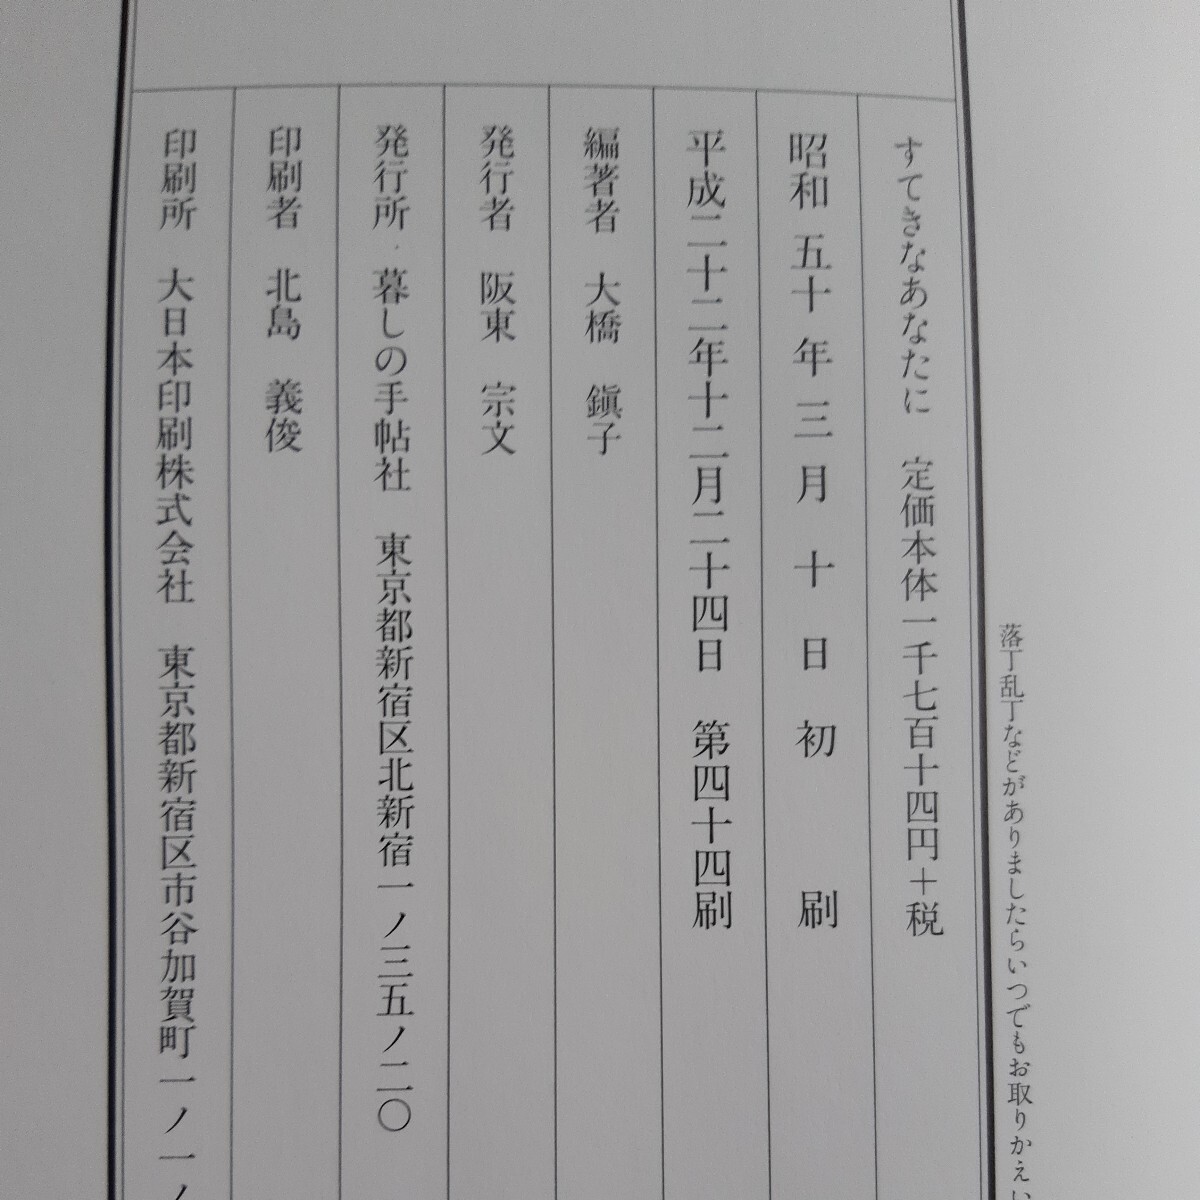 落丁乱丁などがありましたらいつでもお取りかえい
すてきなあなたに 定価本体一千七百十四円＋税
昭和 五十 年 三 月 十 日 初 刷
平成二十二年十二月二十四日 第四十四刷
編著者 大橋 鎭子
発行者 阪東 宗文
発行所 暮しの手帖社 東京都新宿区北新宿一ノ三五ノ二〇
印刷者 北島 義俊
印刷所 大日本印刷株式会社 東京都新宿区市谷加賀町一ノ一ノ